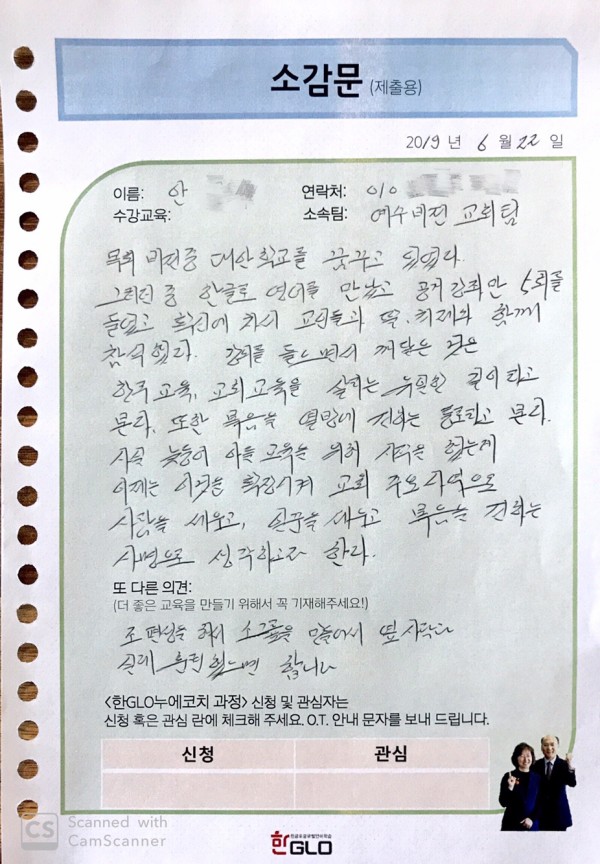 소감문 (제출용)
2019 년 6 월 22 일
이름: 안
연락처: 010
수강교육:
소속팀: 여수비전 교회팀
목회 비전중 대안학교를 꿈꾸고 있었다.
그러던 중 한글로 영어를 만났고 공개강좌만 5회를
들었고 특전에 차시 교인들과 딸. 처제와 함께
참석했다. 강의를 들으면서 깨달은 것은
한국 교육, 교회교육을 살리는 유일한 길이라고
본다. 또한 복음을 열방에 전하는 통로라고 본다.
사실 늦둥이 아들 교육을 위해 시작을 했는데
이제는 이것을 확장시켜 교회 주요사역으로
사람을 세우고, 일꾼을 세우고 복음을 전하는
사명으로 생각하고자 한다.
또 다른 의견:
(더 좋은 교육을 만들기 위해서 꼭 기재해주세요!)
조 편성을 해서 소그룹을 만들어서 옆사람과
실제 훈련했으면 합니다
<한GLO누에코치 과정> 신청 및 관심자는
신청 혹은 관심 란에 체크해 주세요. O.T. 안내 문자를 보내 드립니다.
신청 관심
CS Scanned with
CamScanner
한GLO